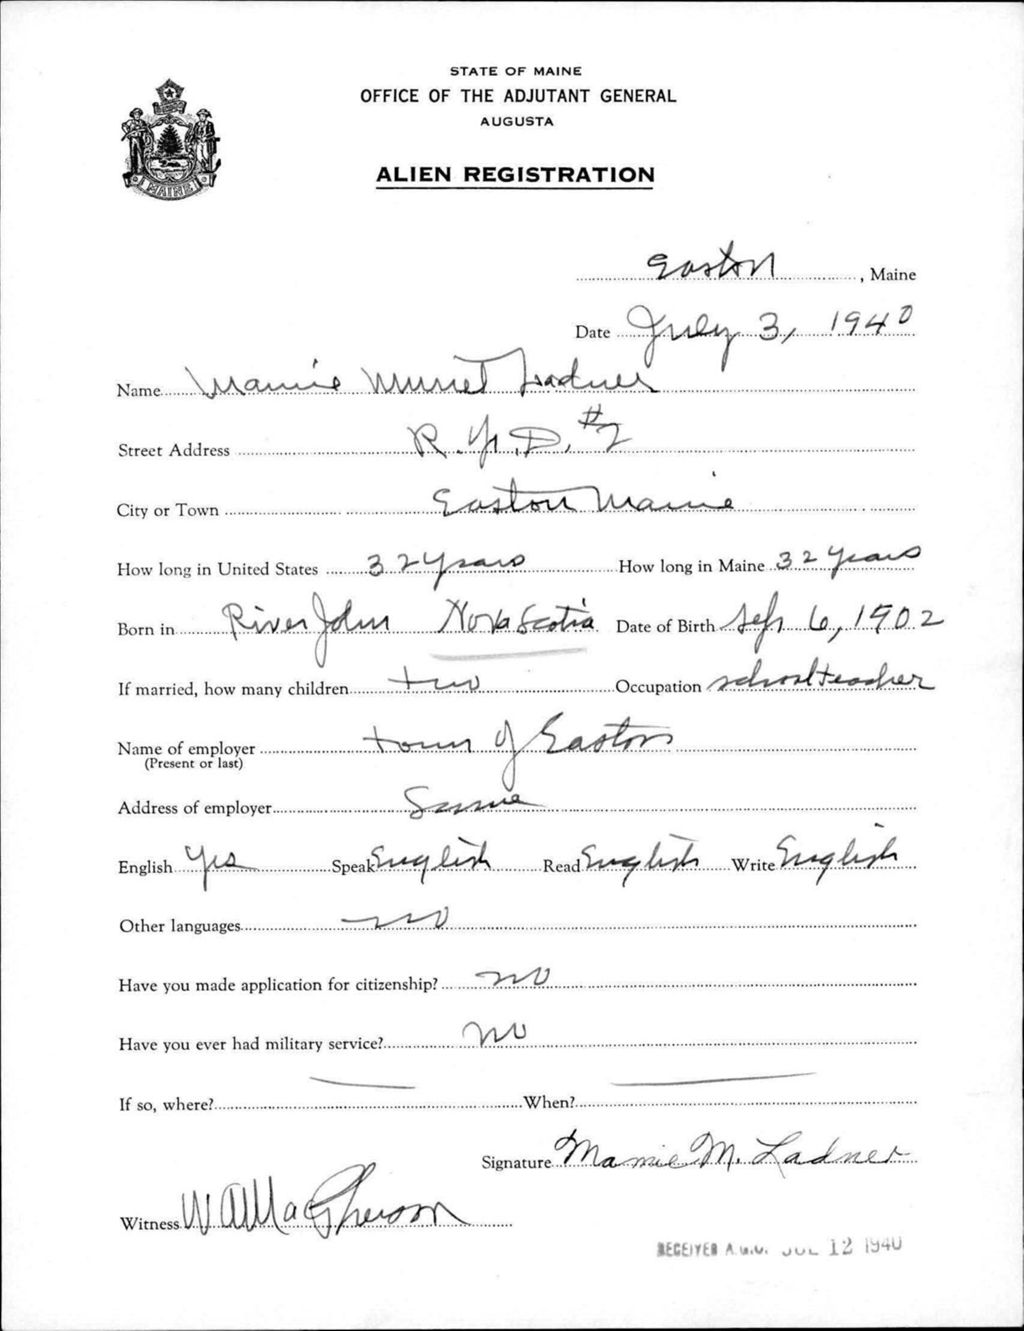 STATE OF MAINE
OFFICE OF THE ADJUTANT GENERAL
AUGUSTA
ALIEN REGISTRATION
MAINE
Easton, Maine
Date July 3, 1940
Name Mamie Muriel Ladner
Street Address R.F.D. #2
City or Town Easton Maine
How long in United States 32 years How long in Maine 32 years
Born in River John Nova Scotia Date of Birth Sep 6, 1902
If married, how many children two Occupation schoolteacher
Name of employer town of Easton
(Present or last)
Address of employer Same
English Yes Speak English Read English Write English
Other languages no
Have you made application for citizenship? no
Have you ever had military service? no
If so, where? When?
Signature Mamie M. Ladner
Witness W A MacPherson
RECEIVED A.G.O. JUL 12 1940